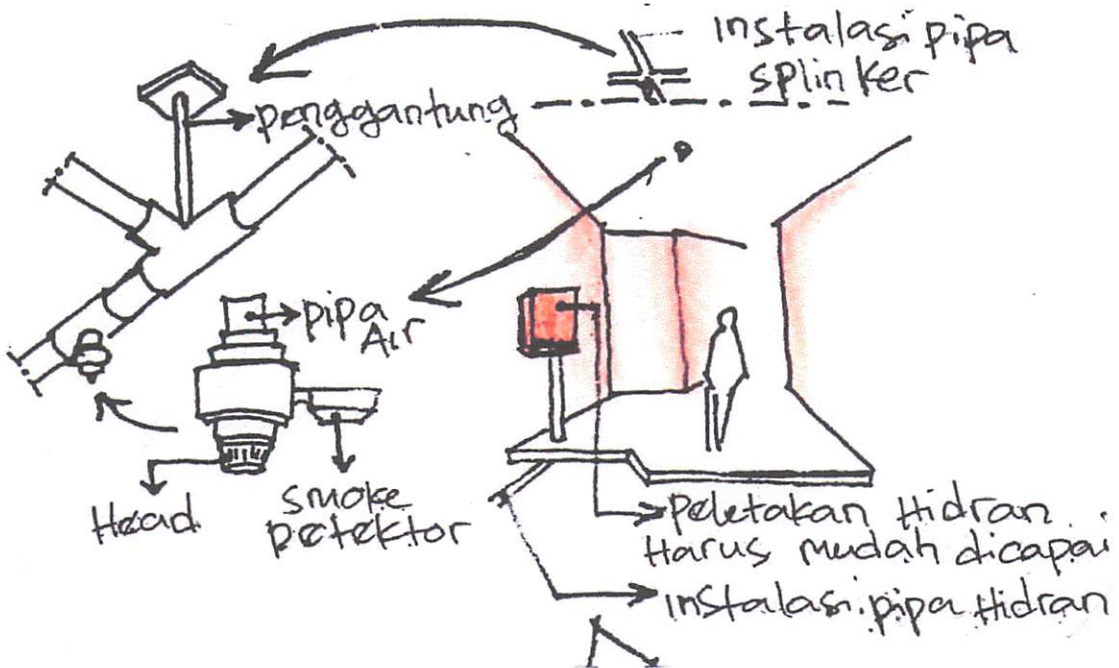 instalasi pipa
splinker
penggantung
pipa
Air
Head
smoke
Detektor
Peletakan Hidran
Harus mudah dicapai
instalasi pipa Hidran